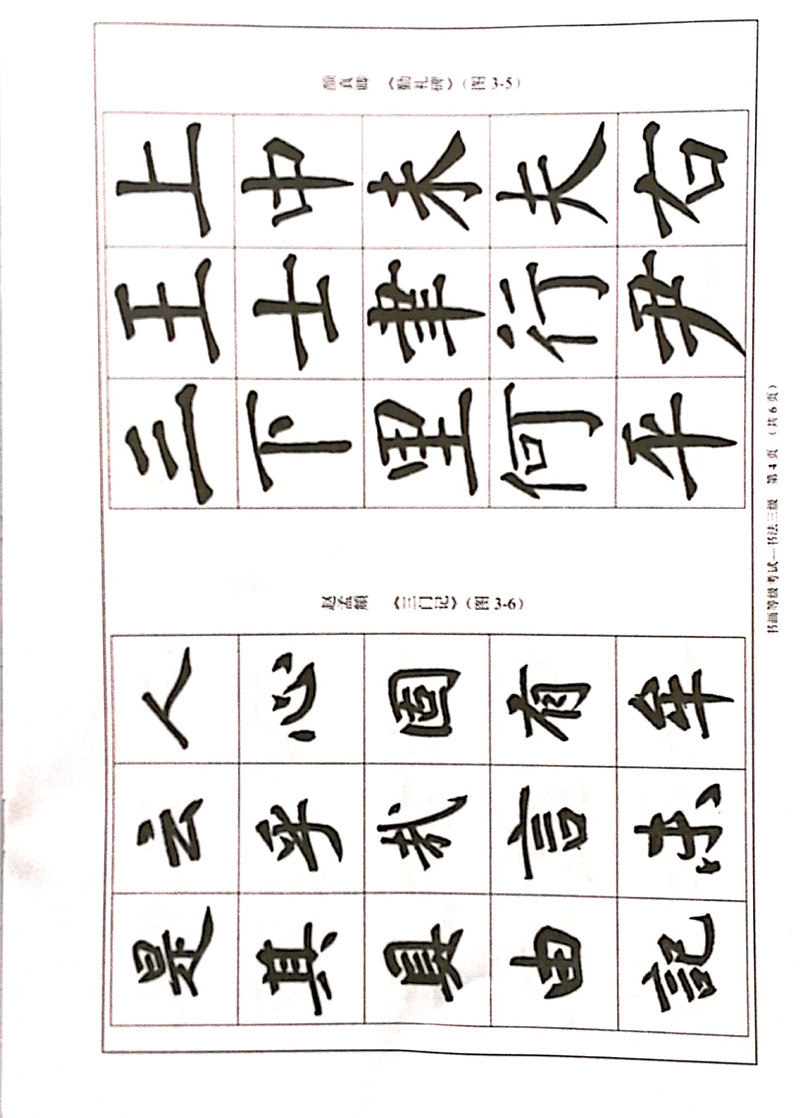 颜真卿 《勤礼碑》（图 3-5）
上 中 未 夫 右
王 士 行 尹
三 下 里 何
赵孟頫 《三门记》（图 3-6）
人 心 固 有 年
云 乎 哉 言
是 真 具 由 記
书画等级考试—书法三级 第 4 页 （共 6 页）